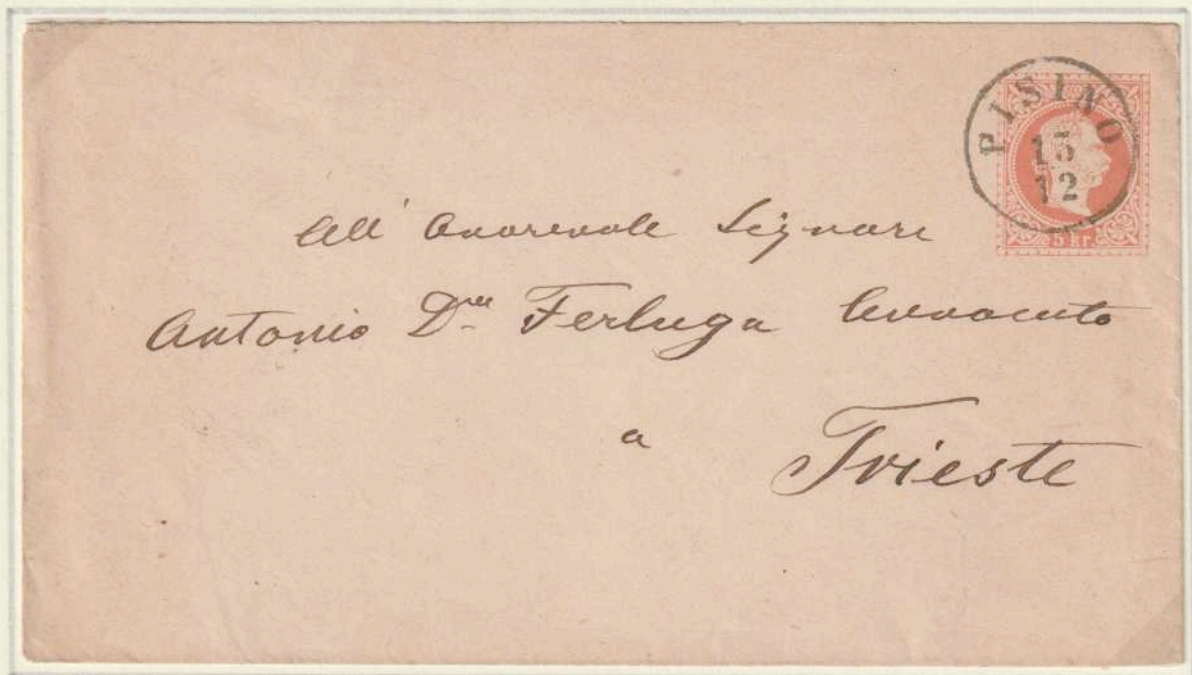 PISINO
15
12
5 kr
All' Onorevole Signore
Antonio Drn Ferluga Avvocato
a
Trieste